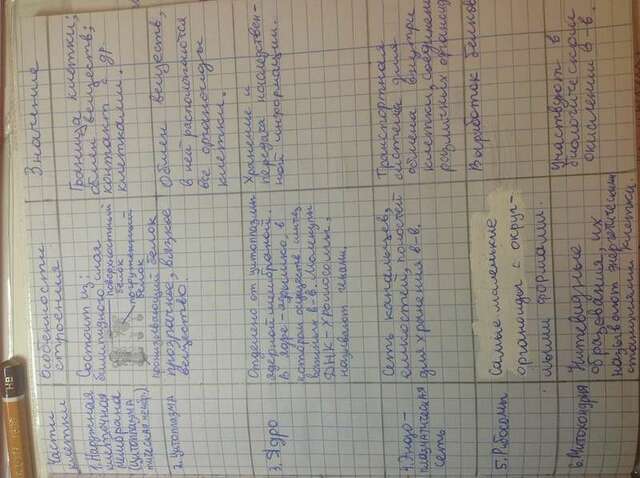 НВ
Части клетки
Особенности строения
Значение
1. Наружная
клеточная
мембрана
(цитоплазма
тическая мемб.)
Состоит из:
билипидного слоя
поверхностный
белок
погруженный
белок
пронизывающий белок
Граница клетки;
обмен веществ;
контакт с др.
клетками.
2. Цитоплазма
прозрачное, вязкое
вещество.
Обмен веществ,
в ней располагаются
все органоиды
клетки.
3. Ядро
Отделено от цитоплазмы
ядерной мембраной.
В ядре - ядрышко, в
котором осуществ. синтез
важных в-в. Молекулы
ДНК - хромосомы,
называют генами.
Хранение и
передача наследствен-
ной информации.
4. Эндо-
плазматическая
сеть
Сеть канальцев,
емкостей, полостей
для хранения в-в.
Транспортная
система для
обмена внутри
клетки, соединен
различных органоид
5. Рибосомы
Самые маленькие
органоиды с округ-
лыми формами.
Выработок белков
6. Митохондрия
Нитевидные
образования, их
называют энергетическими
станциями клетки.
участвуют в
биологическом
окислении в-в.